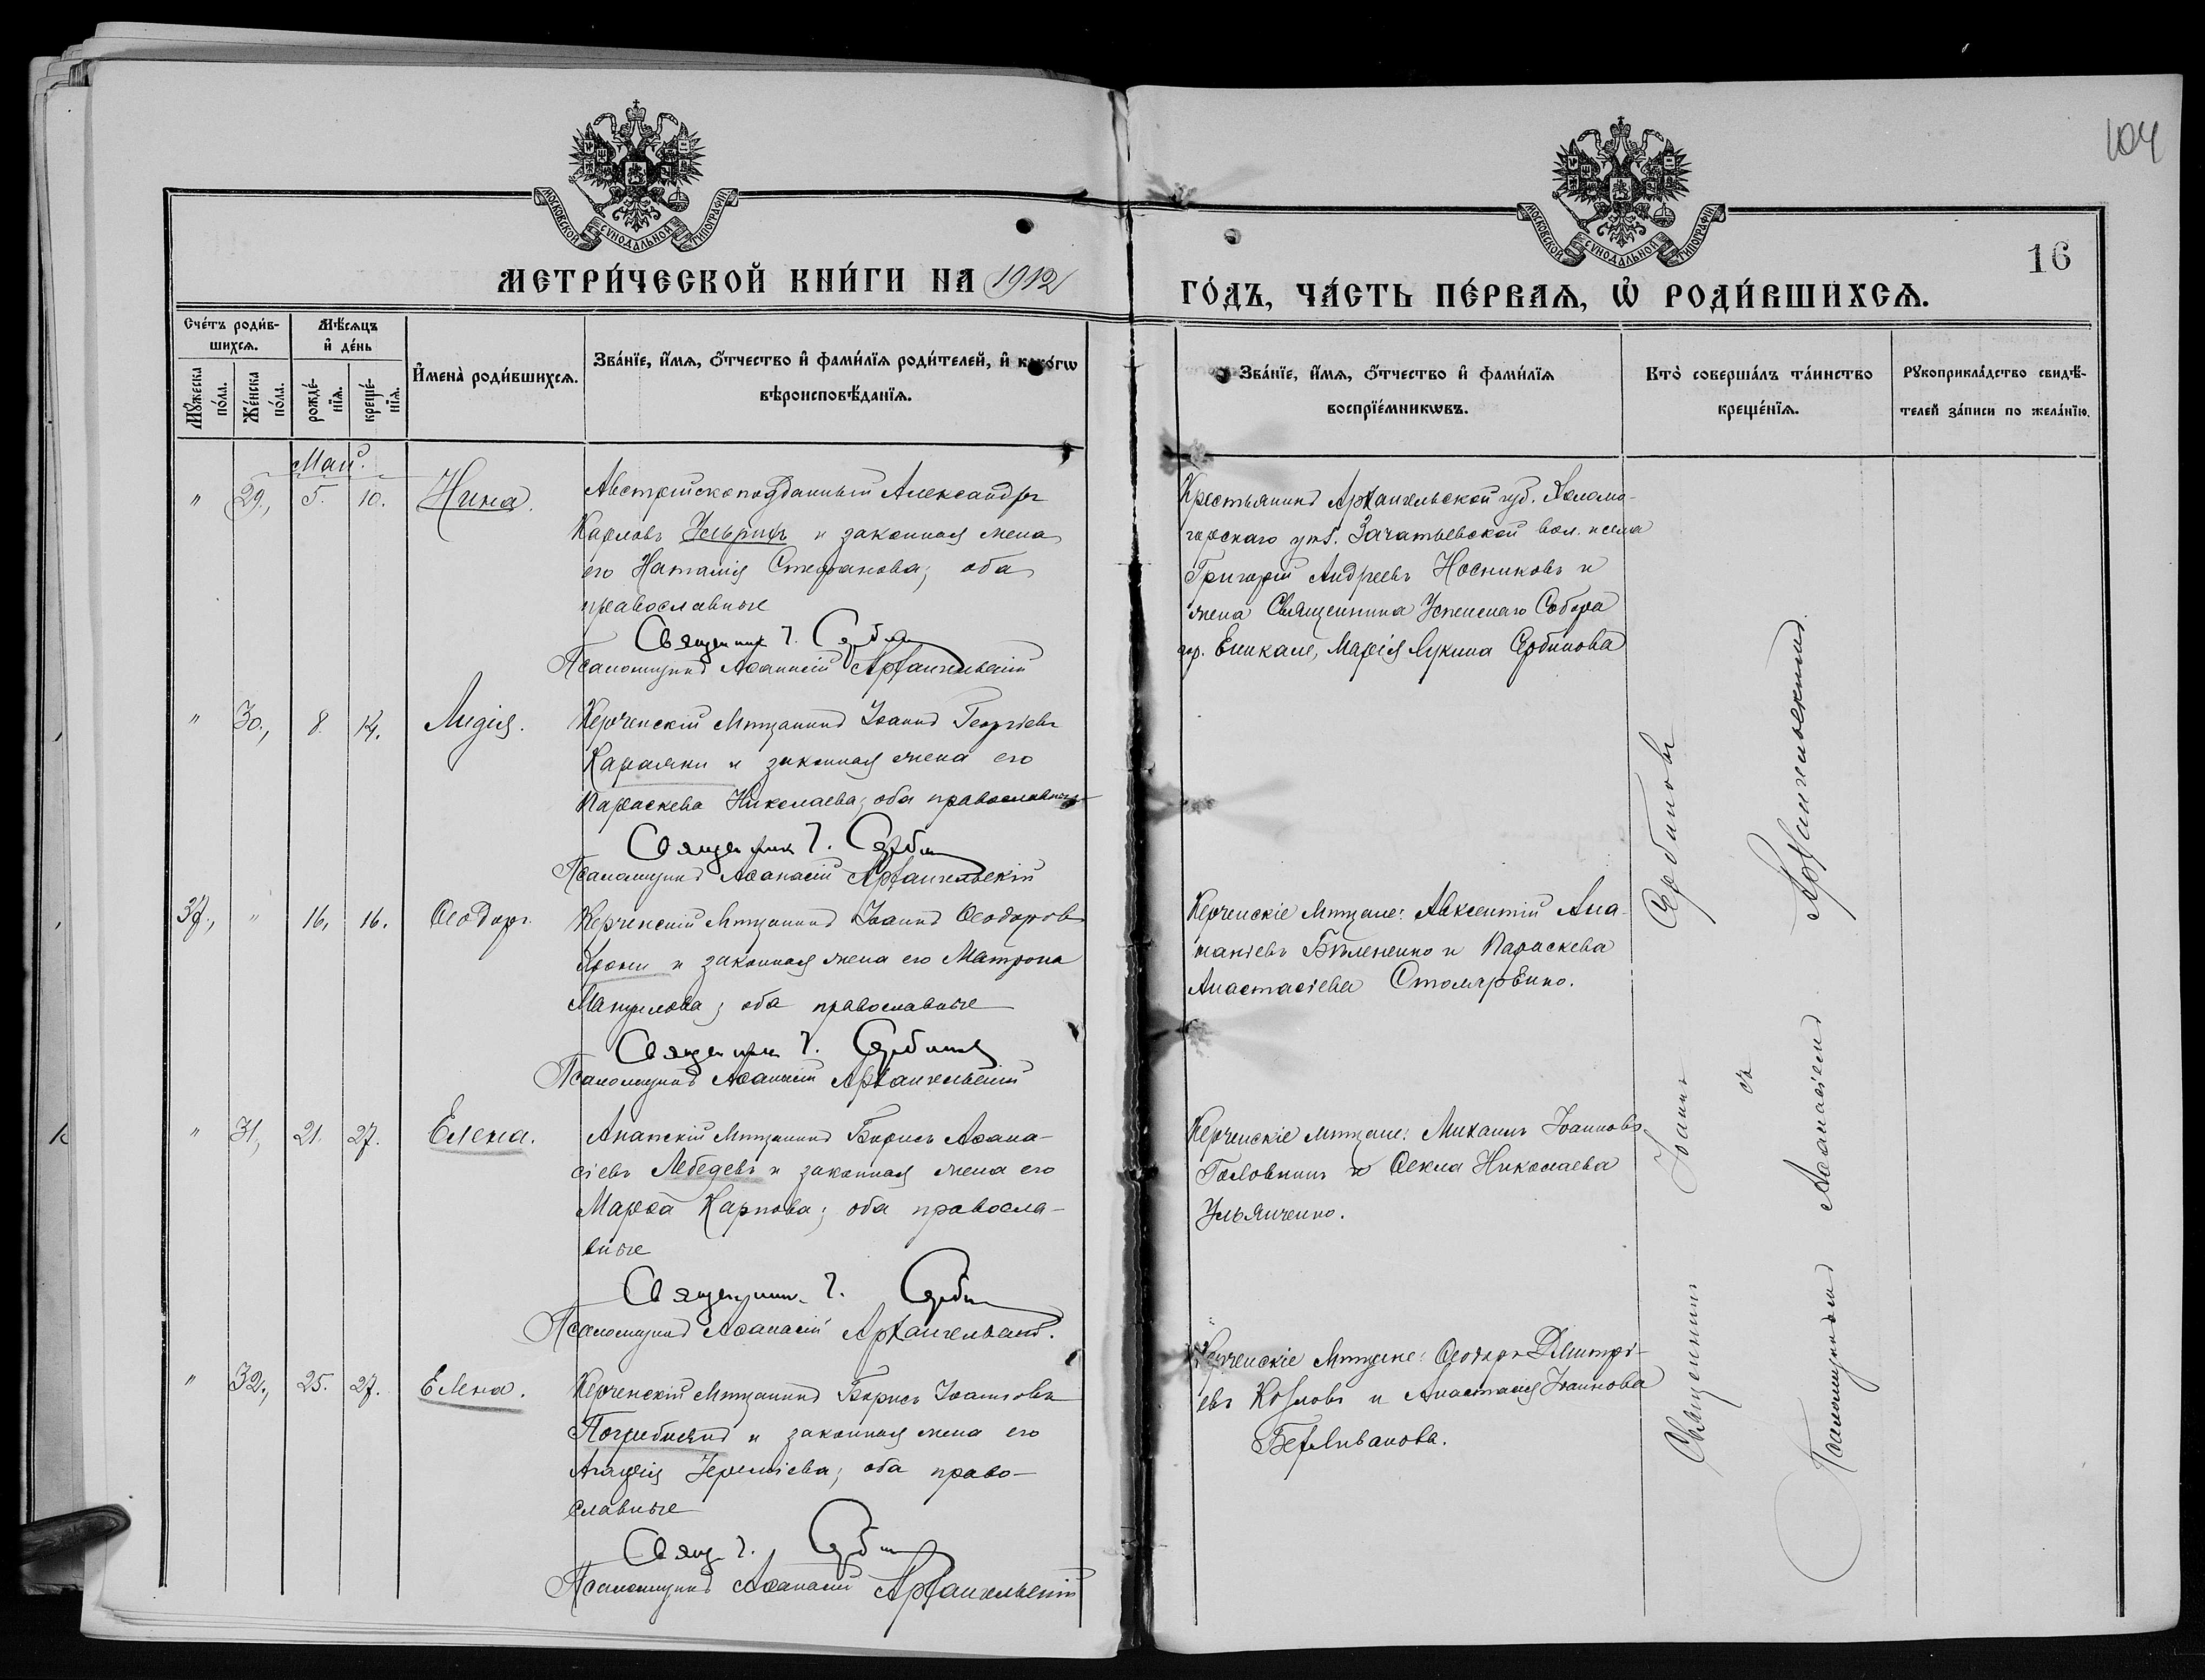 104
16
МОСКОВСКОЙ СѴНОДАЛЬНОЙ ТИПОГРАФІИ
МОСКОВСКОЙ СѴНОДАЛЬНОЙ ТИПОГРАФІИ
МЕТРИ́ЧЕСКОЙ КНИ́ГИ НА 1912
ГО́ДЪ, ЧА́СТЬ ПЕ́РВАЯ, Ѡ҆ РОДИ́ВШИХСѦ.
Сче́тъ роди́в-
шихсѧ.
Мꙋ́жеска по́ла.
Же́нска по́ла.
Мѣ́сѧцъ
и҆ де́нь
рожде́-
нїѧ.
креще́-
нїѧ.
И҆мена̀ роди́вшихсѧ.
Зва́нїе, и҆́мѧ, ѻ҆́тчество и҆ фами́лїѧ роди́телей, и҆ како́гѡ
вѣроисповѣ́данїѧ.
Зва́нїе, и҆́мѧ, ѻ҆́тчество и҆ фами́лїѧ
воспрїе́мникѡвъ.
Кто̀ соверша́лъ та́инство
креще́нїѧ.
Рꙋкоприкла́дство свидѣ́-
телей за́писи по жела́нїю.
Май.
" 29., 5. 10. Нина.
Австрійскоподданный Александръ
Карловъ Ульрихъ и законная жена
его Наталія Стефанова; оба
православные
Священник І. Сербин
Псаломщикъ Аѳанасій Архангельскій
Крестьянинъ Архангельской губ. Холмо-
горскаго уѣз. Зачатьевской вол. и села
Григорій Андреевъ Носниковъ и
жена Священника Успенскаго Собора
гор. Еникале, Марія Лукина Сербинова
" 30., 8. 14. Лидія.
Керченскій Мѣщанинъ Іоаннъ Георгіевъ
Караяни и законная жена его
Параскева Николаева; оба православные
Священник І. Сербин
Псаломщикъ Аѳанасій Архангельскій
37., " 16. 16. Ѳеодоръ.
Керченскій Мѣщанинъ Іоаннъ Ѳеодоровъ
и законная жена его Матрона
Мануилова; оба православные
Священник І. Сербинов
Псаломщикъ Аѳанасій Архангельскій
Керченскіе Мѣщане: Авксентій Ана-
ніевъ Бѣленко и Параскева
Анастасіева Столяренко.
" 31., 21. 27. Елена.
Анапскій Мѣщанинъ Борисъ Аѳана-
сіевъ Лебедевъ и законная жена его
Марѳа Карпова; оба правосла-
вные
Священник І. Сербин
Псаломщикъ Аѳанасій Архангельскій.
Керченскіе мѣщане: Михаилъ Іоанновъ
Головкинъ и Ѳекла Николаева
Ульянченко.
" 32., 25. 27. Елена.
Керченскій Мѣщанинъ Борисъ Іоанновъ
и законная жена его
Агафія Іереміева; оба право-
славные
Свящ І. Сербин
Псаломщикъ Аѳанасій Архангельскій
Керченскіе Мѣщане: Ѳеодоръ Димитрі-
евъ Козловъ и Анастасія Іоаннова
Безливанова.
Священникъ Іоаннъ Сербиновъ
съ
Псаломщикомъ Аѳанасіемъ Архангельскимъ.